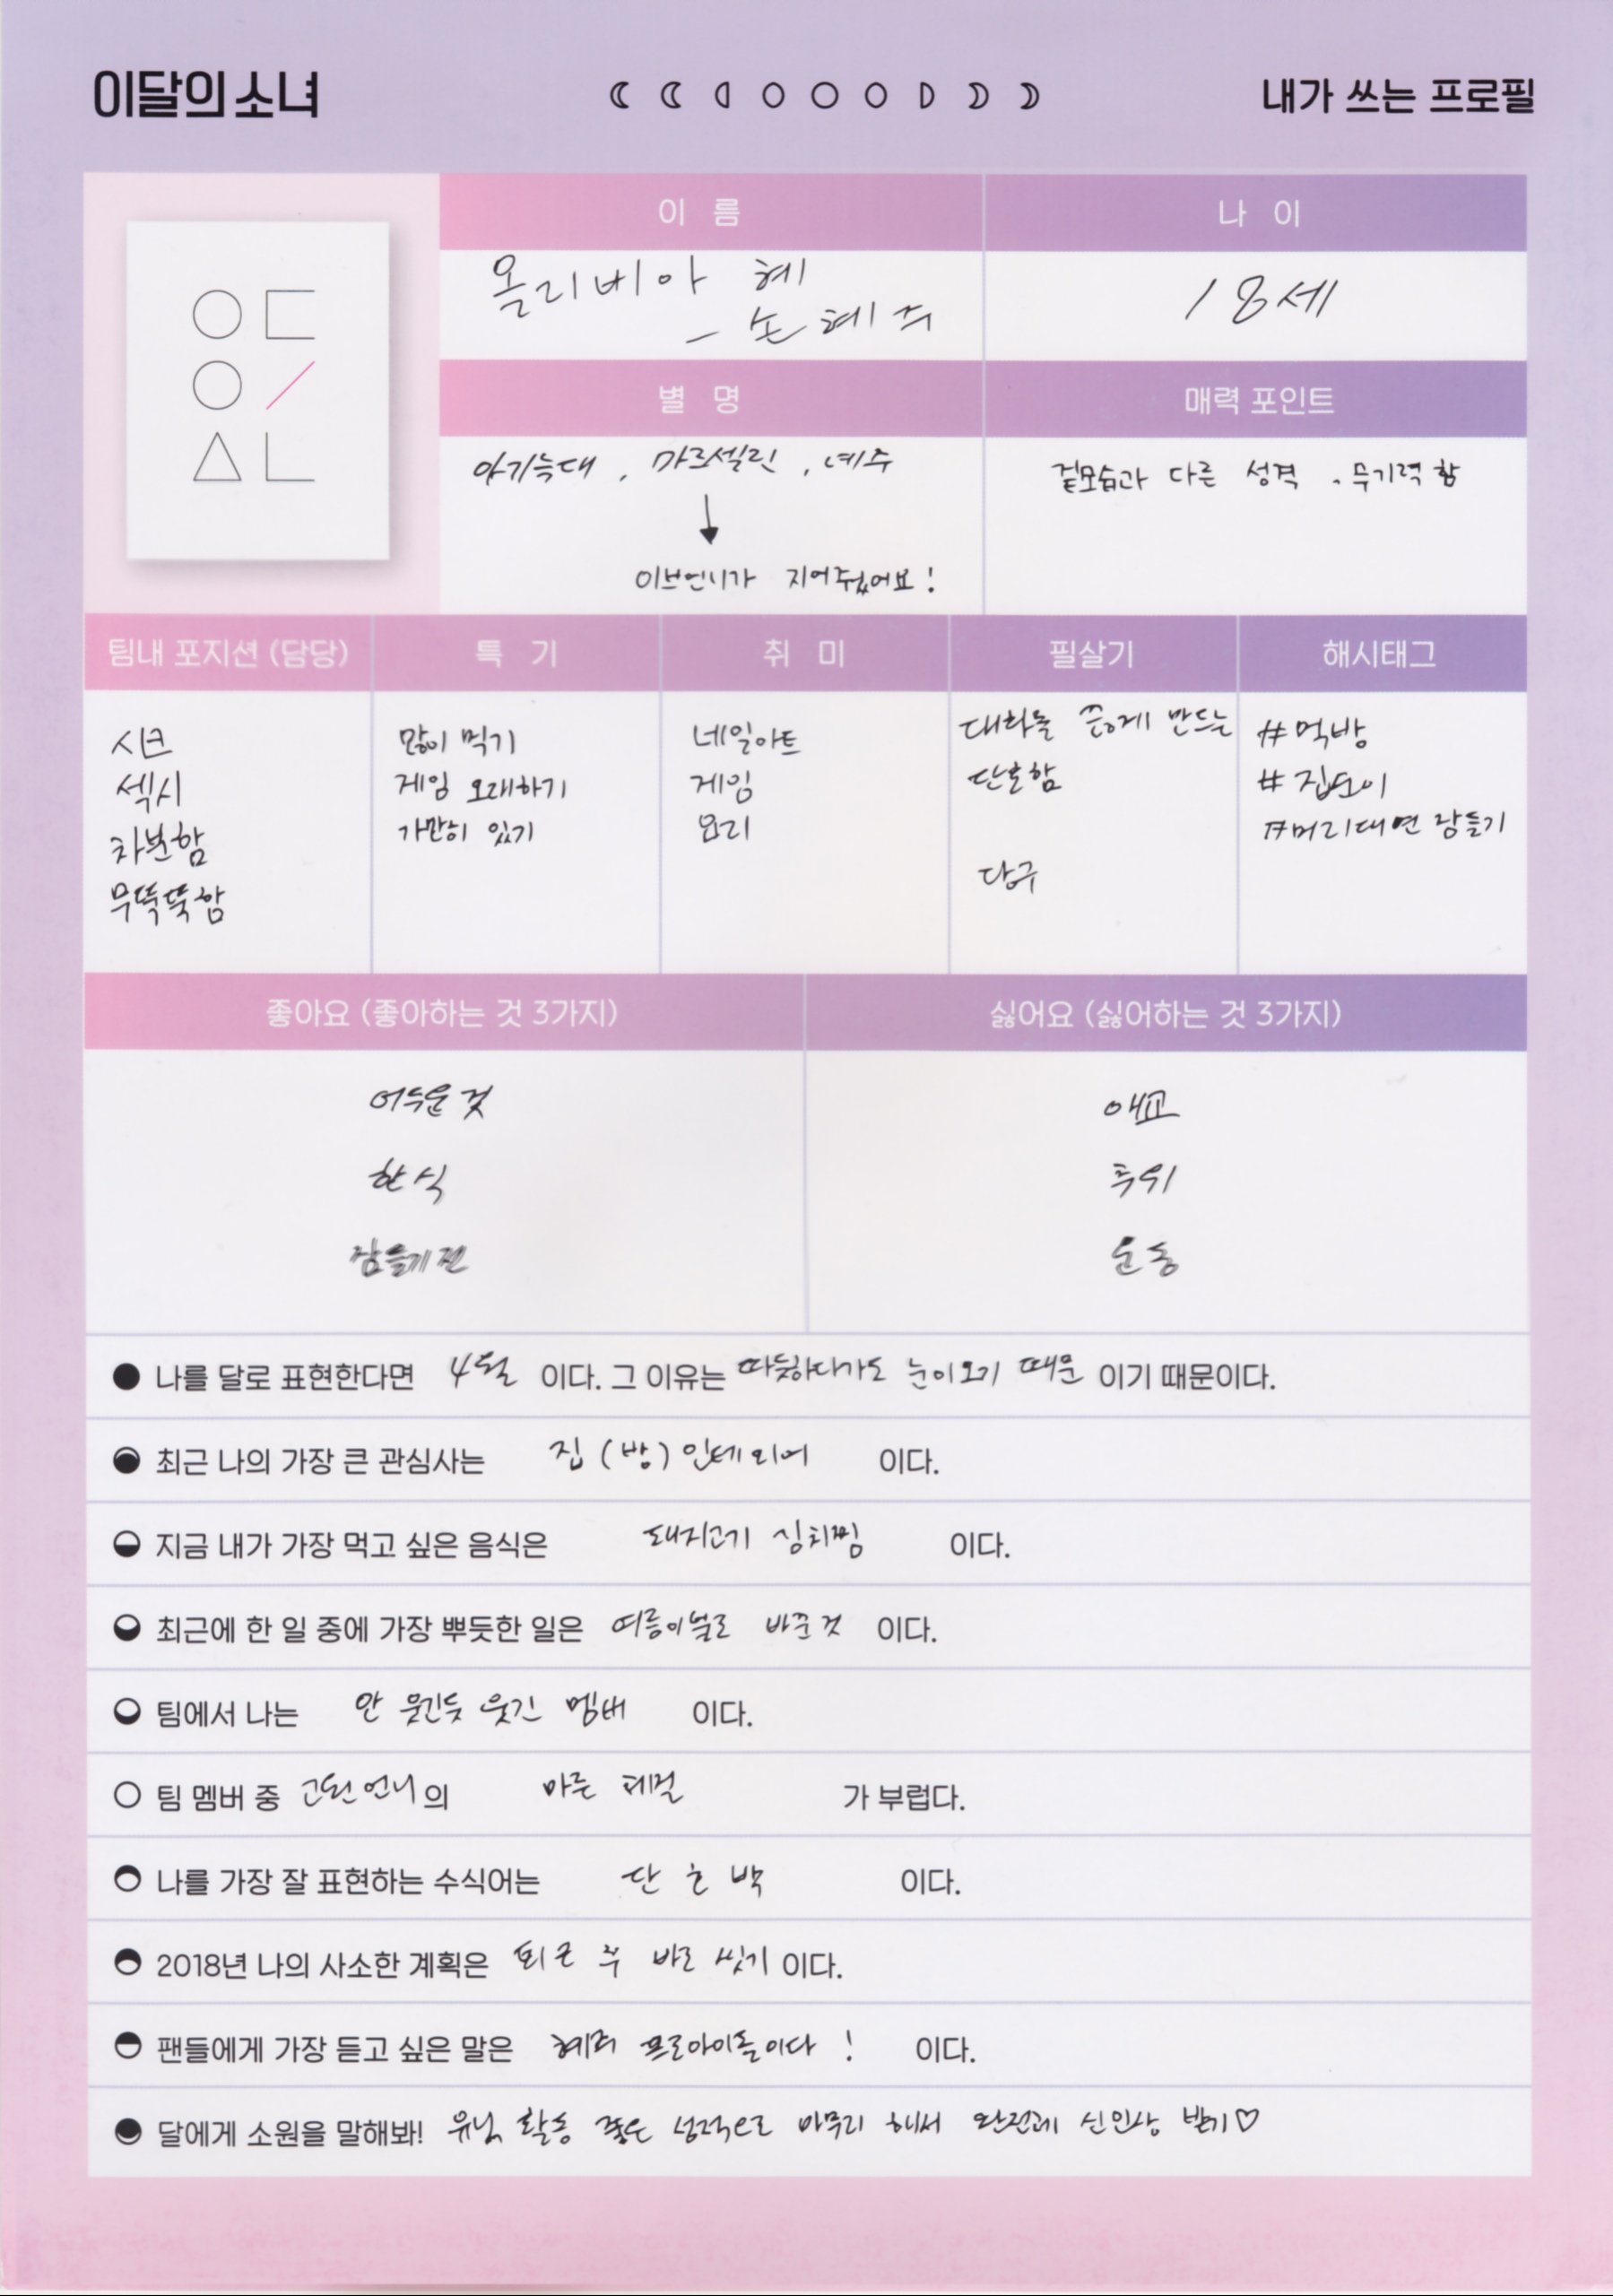 이달의 소녀
내가 쓰는 프로필
이 름
나 이
올리비아 혜
- 손혜주
18세
별 명
매력 포인트
아기늑대, 마르셀린, 네주
이브언니가 지어줬어요!
겉모습과 다른 성격, 무기력함
팀내 포지션 (담당)
특 기
취 미
필살기
해시태그
시크
섹시
차분함
무뚝뚝함
많이 먹기
게임 오래하기
가만히 있기
네일아트
게임
요리
대화를 끊기게 만드는
단호함
당구
#먹방
#집순이
#머리대면 잠들기
좋아요 (좋아하는 것 3가지)
싫어요 (싫어하는 것 3가지)
어두운 것
한식
잠들기 전
애교
추위
운동
나를 달로 표현한다면 4월 이다. 그 이유는 따듯하다가도 눈이오기 때문 이기 때문이다.
최근 나의 가장 큰 관심사는 집(방) 인테리어 이다.
지금 내가 가장 먹고 싶은 음식은 돼지고기 김치찜 이다.
최근에 한 일 중에 가장 뿌듯한 일은 여름이불로 바꾼 것 이다.
팀에서 나는 안 웃긴듯 웃긴 멤버 이다.
팀 멤버 중 고원언니의 마른 체질 가 부럽다.
나를 가장 잘 표현하는 수식어는 단호박 이다.
2018년 나의 사소한 계획은 퇴근 후 바로 씻기 이다.
팬들에게 가장 듣고 싶은 말은 혜주 프로아이돌이다! 이다.
달에게 소원을 말해봐! 유닛 활동 좋은 성적으로 마무리 해서 완전체 신인상 받기♡